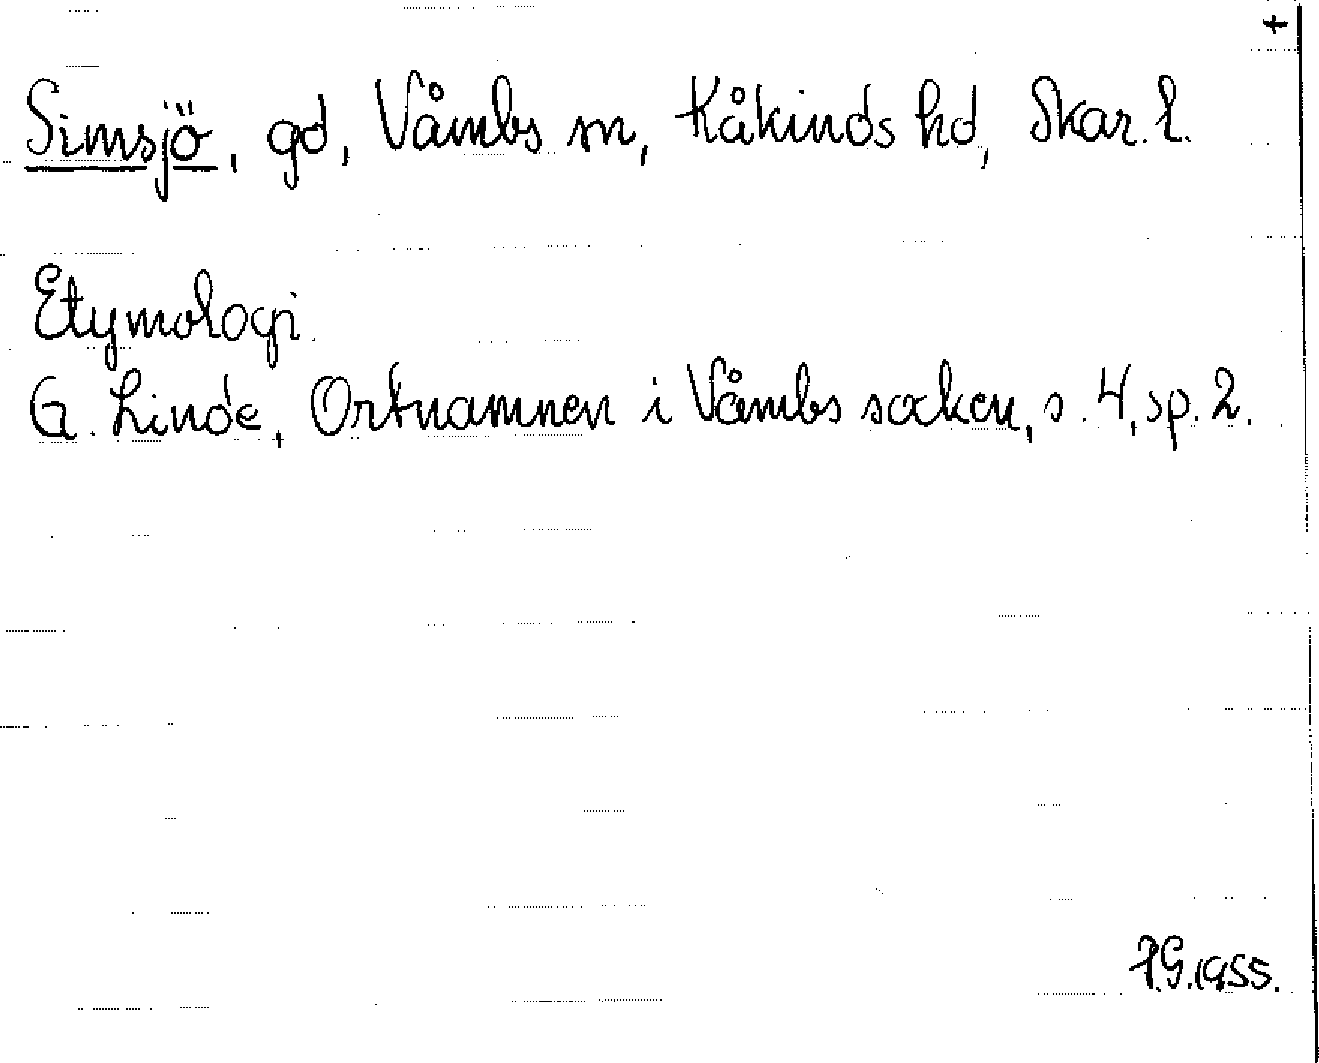 +
Simsjö, gd, Våmbs sn, Kåkinds hd, Skar. l.
Etymologi.
G. Linde, Ortnamnen i Våmbs socken, s. 4, sp. 2.
1955.